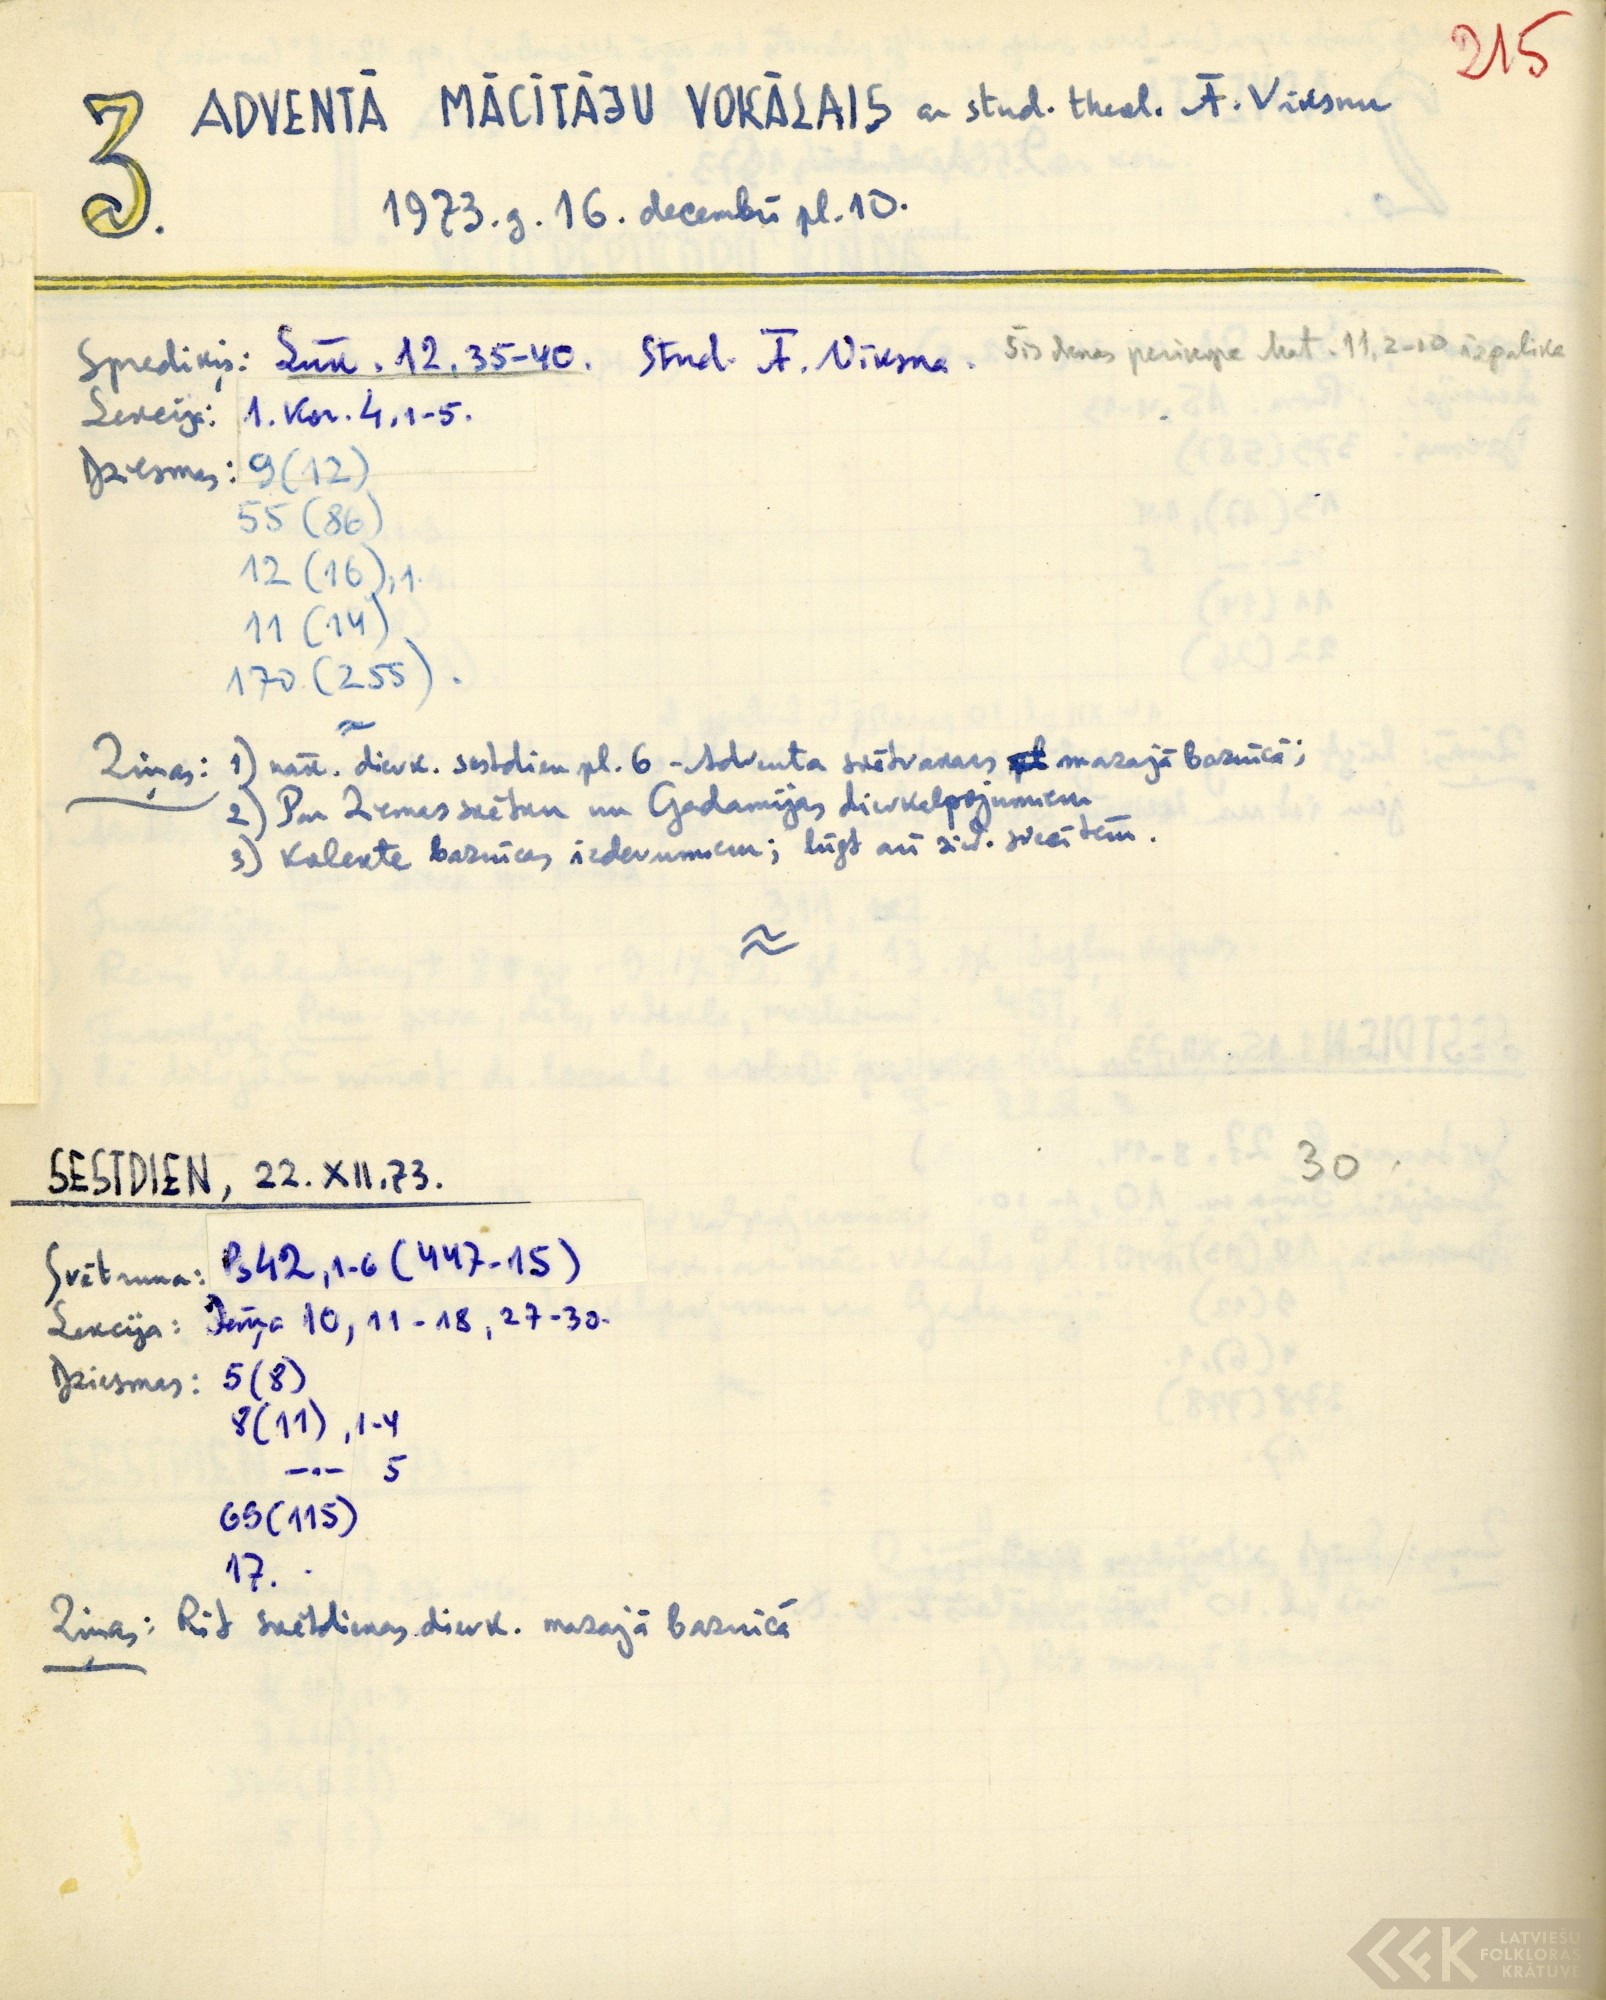 215
3. ADVENTĀ MĀCĪTĀJU VOKĀLAIS ar stud. theol. Ā. Vīksnu
1973. g. 16. decembrī pl. 10.
Sprediķis: Lūk. 12, 35-40. Stud. Ā. Vīksna. Šīs dienas perikope Mat. 11, 2-10 izpalika
Lekcija: 1. Kor. 4, 1-5.
Dziesmas: 9 (12)
55 (86)
12 (16), 1.
11 (14)
170 (255).
Ziņas: 1) nāk. dievk. sestdien pl. 6 - Adventa svētvakars mazajā baznīcā;
2) Par Ziemassvētku un Gadamijas dievkalpojumiem
3) Kolekte baznīcas izdevumiem; lūgt arī zied. svecītēm.
SESTDIEN, 22. XII. 73.
30
Svētruna: Ps 42, 1-6 (447-15)
Lekcija: Jāņa 10, 11-18, 27-30.
Dziesmas: 5 (8)
8 (11), 1-4
-·- 5
69 (115)
17.
Ziņas: Rīt svētdienas dievk. mazajā baznīcā
LATVIEŠU
FOLKLORAS
KRĀTUVE